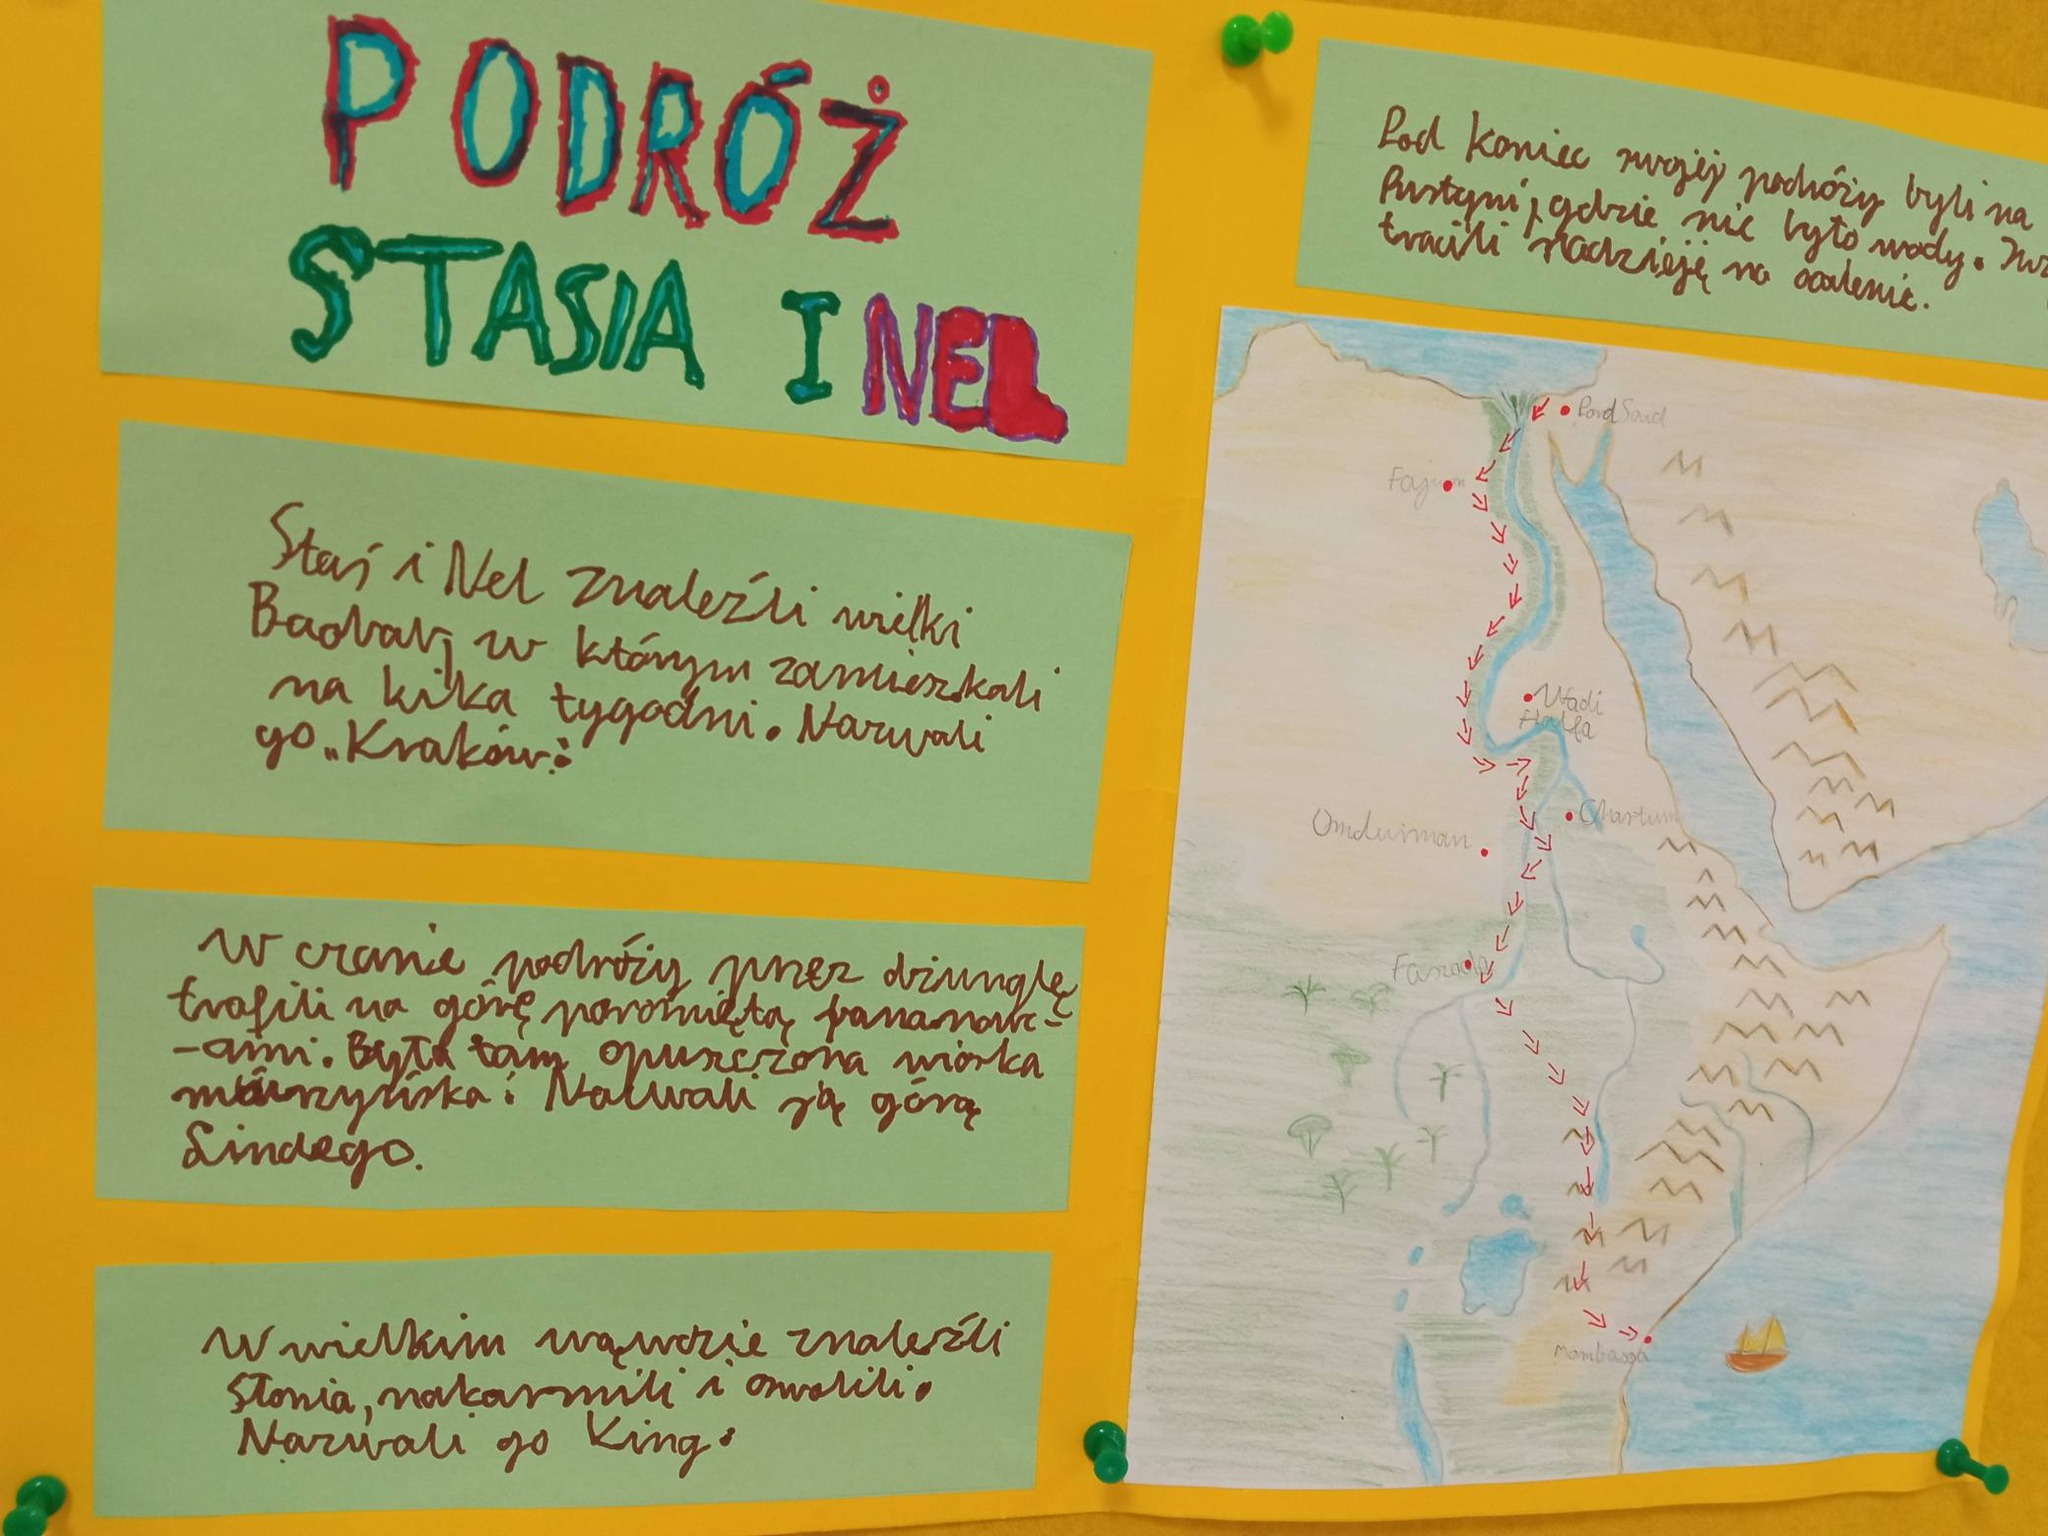 PODRÓŻ
STASIA I NEL
Staś i Nel znaleźli wielki
Baobab, w którym zamieszkali
na kilka tygodni. Nazwali
go „Kraków”.
W czasie podróży przez dżunglę
trafili na górę porośniętą bananow-
-ami. Była tam opuszczona wioska
murzyńska. Nazwali ją górą
Lindego.
W wielkim wąwozie znaleźli
słonia, nakarmili i oswoili.
Nazwali go King.
Pod koniec swojej podróży byli na
Pustyni, gdzie nie było wody.
tracili nadzieję na ocalenie.
Pord Said
Fajum
Wadi
Halfa
Chartum
Omdurman
Faszoda
Mombassa